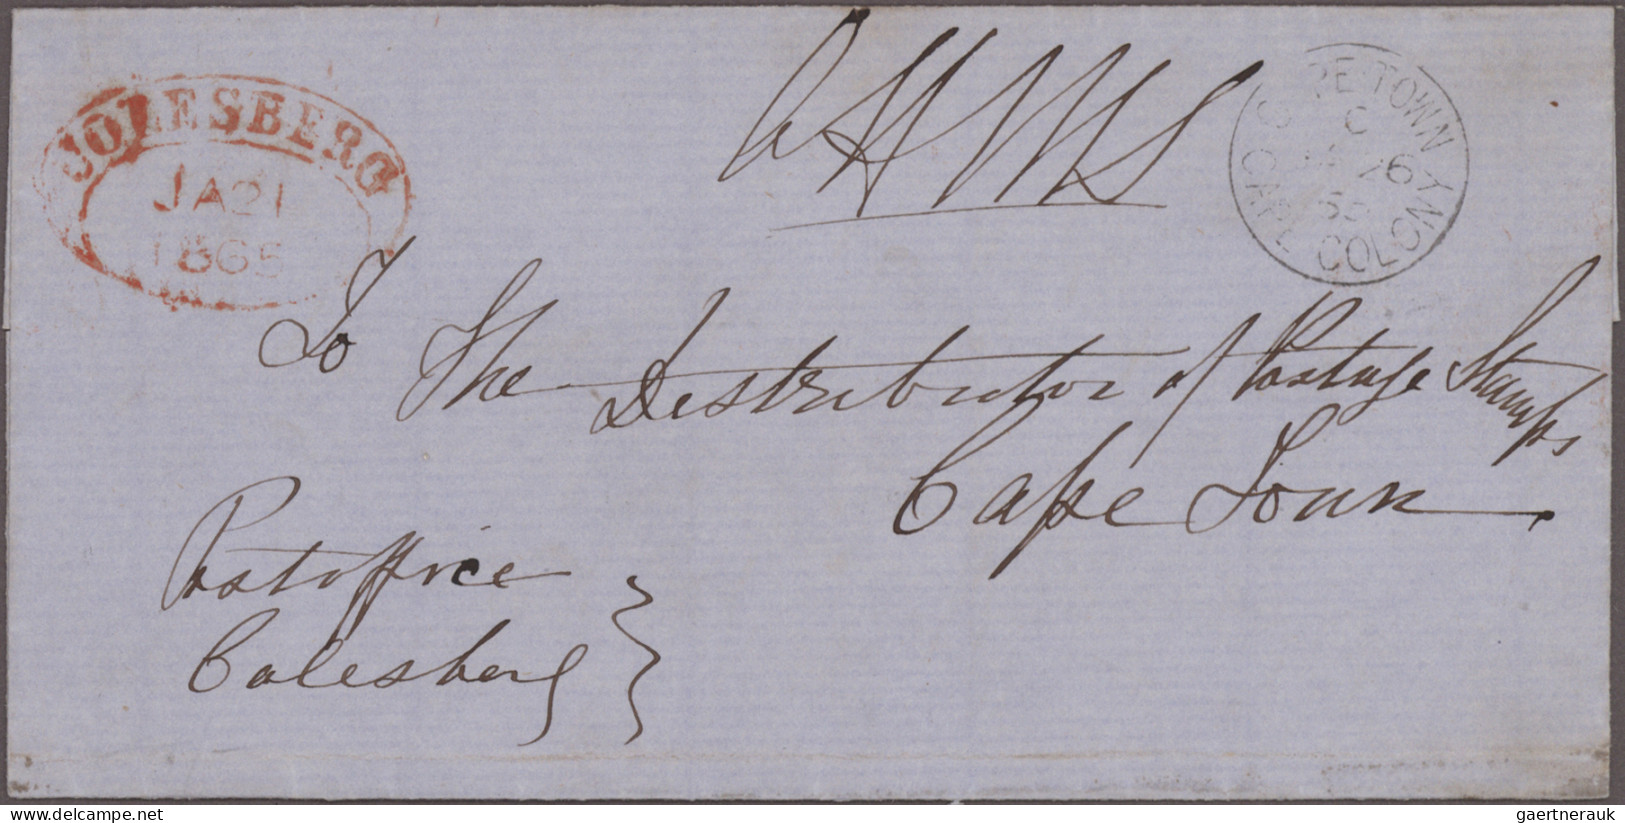 COLESBERG
JA 21
1865
OHMS
CAPE TOWN
C
26
65
CAPE COLONY
To The Distributor of Postage Stamps
Cape Town
Post office
Colesberg
gaertnerauk